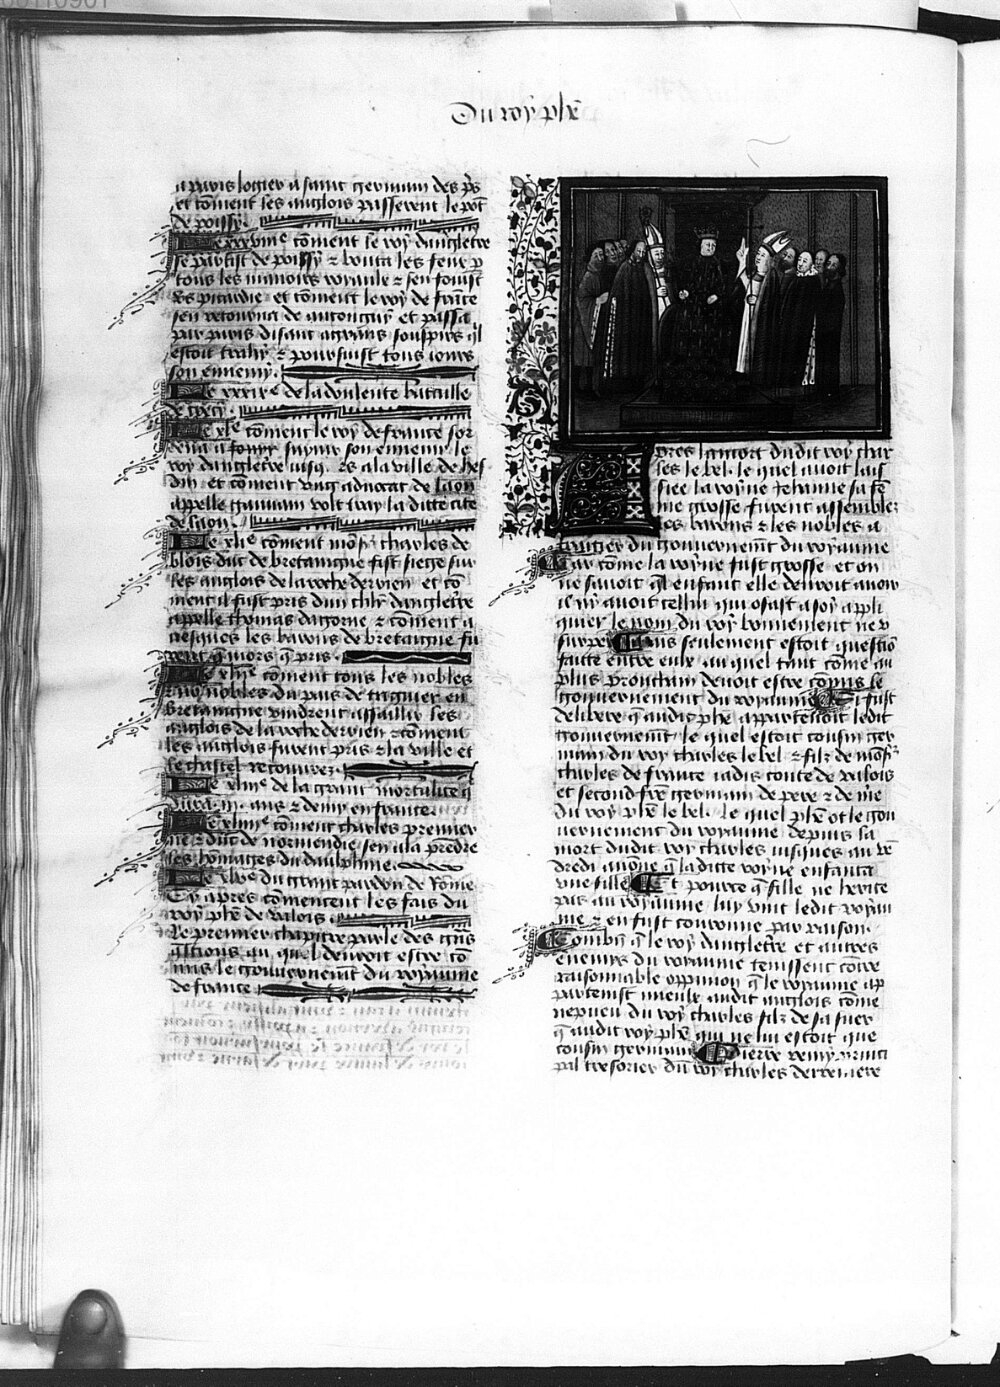 Du roy phē
a paris logier a saint germain des p̄s
et cōment les anglois passerent le pōt
de poissy.
Le xxxviiie cōment le roy dangletre
se partist de poissy ⁊ bouta les feux p
tous les manoirs royaulx ⁊ sen fouist
es picardie et cōment le roy de frāce
sen retourna de antongny et passa
par paris disant a grans souspirs q̄l
estoit trahy ⁊ poursuist tous iours
son ennemy.
Le xxxixe de la doulente bataille
de crecy.
Le xle cōment le roy de france sor
suyuir son ennemy le
roy dangletre iusq̄s a la ville de hes
din et cōment vng aduocat de laon
appelle gauuain volt tray la dicte cite
de laon.
Le xlie cōment mōsr charles de
blois duc de bretaigne fist siege sur
les anglois de la roche derrien et cō
ment il fust pris dun chlr dangletre
appelle thomas dagorne ⁊ cōment a
uesques les barons de bretaigne fu
rent q̄ mors q̄ pris.
Le xliie cōment tous les nobles
⁊ nō nobles du pais de triguier en
bretaigne vindrent assaillir les
anglois de la roche derrien ⁊ cōment
les anglois furent pris ⁊ la ville et
le chastel recouurez.
Le xliiie de la grant mortalite q̄
dura .iii. ans ⁊ demy en france
Le xliiiie cōment charles premier
ne ⁊ duc de normendie sen ala prēdre
les hōmages du daulphine.
Le xlve du grant pardon de rōme
Cy apres cōmencent les fais du
roy phē de valois.
Le premier chapitre parle des q̄us
q̄stions au quel deuoit estre cō
mis le gouuernemēt du royaume
de france
Apres la mort dudit roy char
les le bel. le quel auoit lais
siee la royne Jehanne sa fē
me grosse furent assemblez
les barons ⁊ les nobles a
traitier du gouuernemēt du royaume
Car cōme la royne fust grosse et on
ne sauoit q̄l enfant elle deuroit auoir
il ny auoit cellui qui osast a soy appli
quier le nom du roy
Mais seulement estoit questiō
faicte entre eulx au quel tant cōme au
plus prouchain deuoit estre cōmis le
gouuernement du royaume Si fust
delibere q̄ audit phē appartenoit ledit
gouuernemēt. le quel estoit cousin ger
main du roy charles le bel ⁊ filz de mōsr
charles de france iadis conte de valois
et second fre germain de pere ⁊ de mē
du roy phē le bel. le quel phē ot le gou
uernement du royaume depuis la
mort dudit roy charles iusques au vē
dredi auōre q̄ la dicte royne enfanta
vne fille Et pource q̄ fille ne herite
pas au royaume luy vint ledit royau
me ⁊ en fust couronne par raison.
Combiē q̄ le roy dangletre et autres
ennemys du royaume tenissent cōtre
raisonnable oppinion q̄ le royaume ap
partenist mieulx audit anglois cōme
nepueu du roy charles filz de sa suer
q̄ audit roy phē qui ne lui estoit que
cousin germain Pierre remy princi
pal tresorier du roy charles derreniere